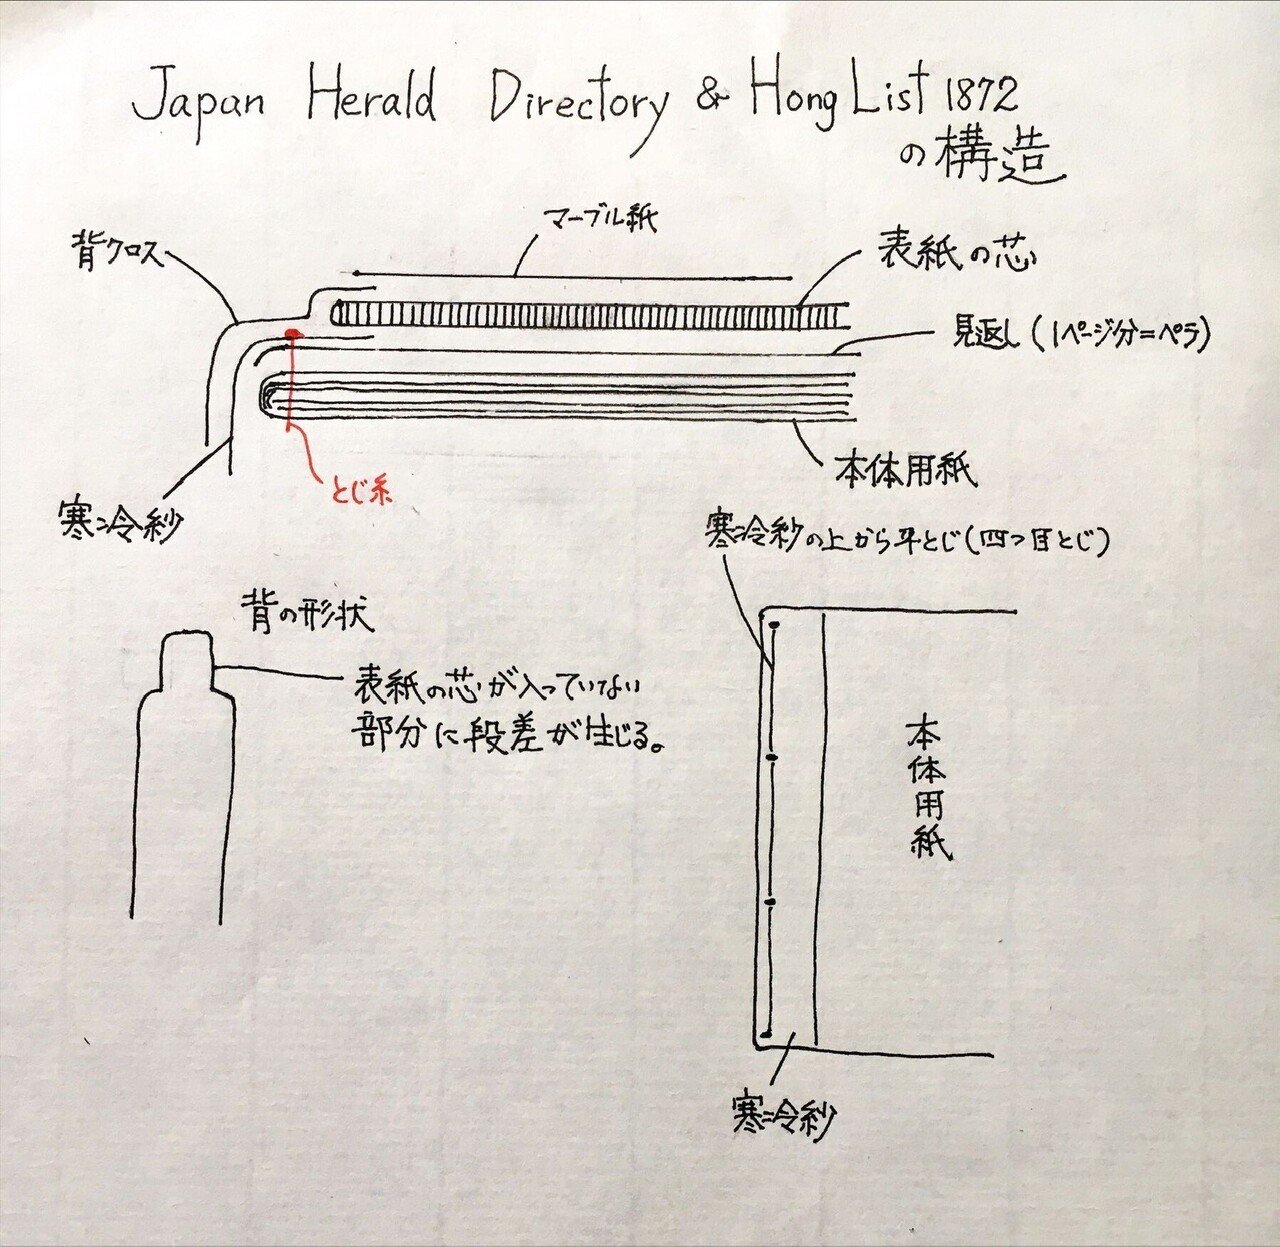 Japan Herald Directory & Hong List 1872
の構造
マーブル紙
背クロス
表紙の芯
見返し(1ページ分=ペラ)
本体用紙
とじ糸
寒冷紗
寒冷紗の上から平とじ(四つ目とじ)
背の形状
表紙の芯が入っていない
部分に段差が生じる。
本体用紙
寒冷紗